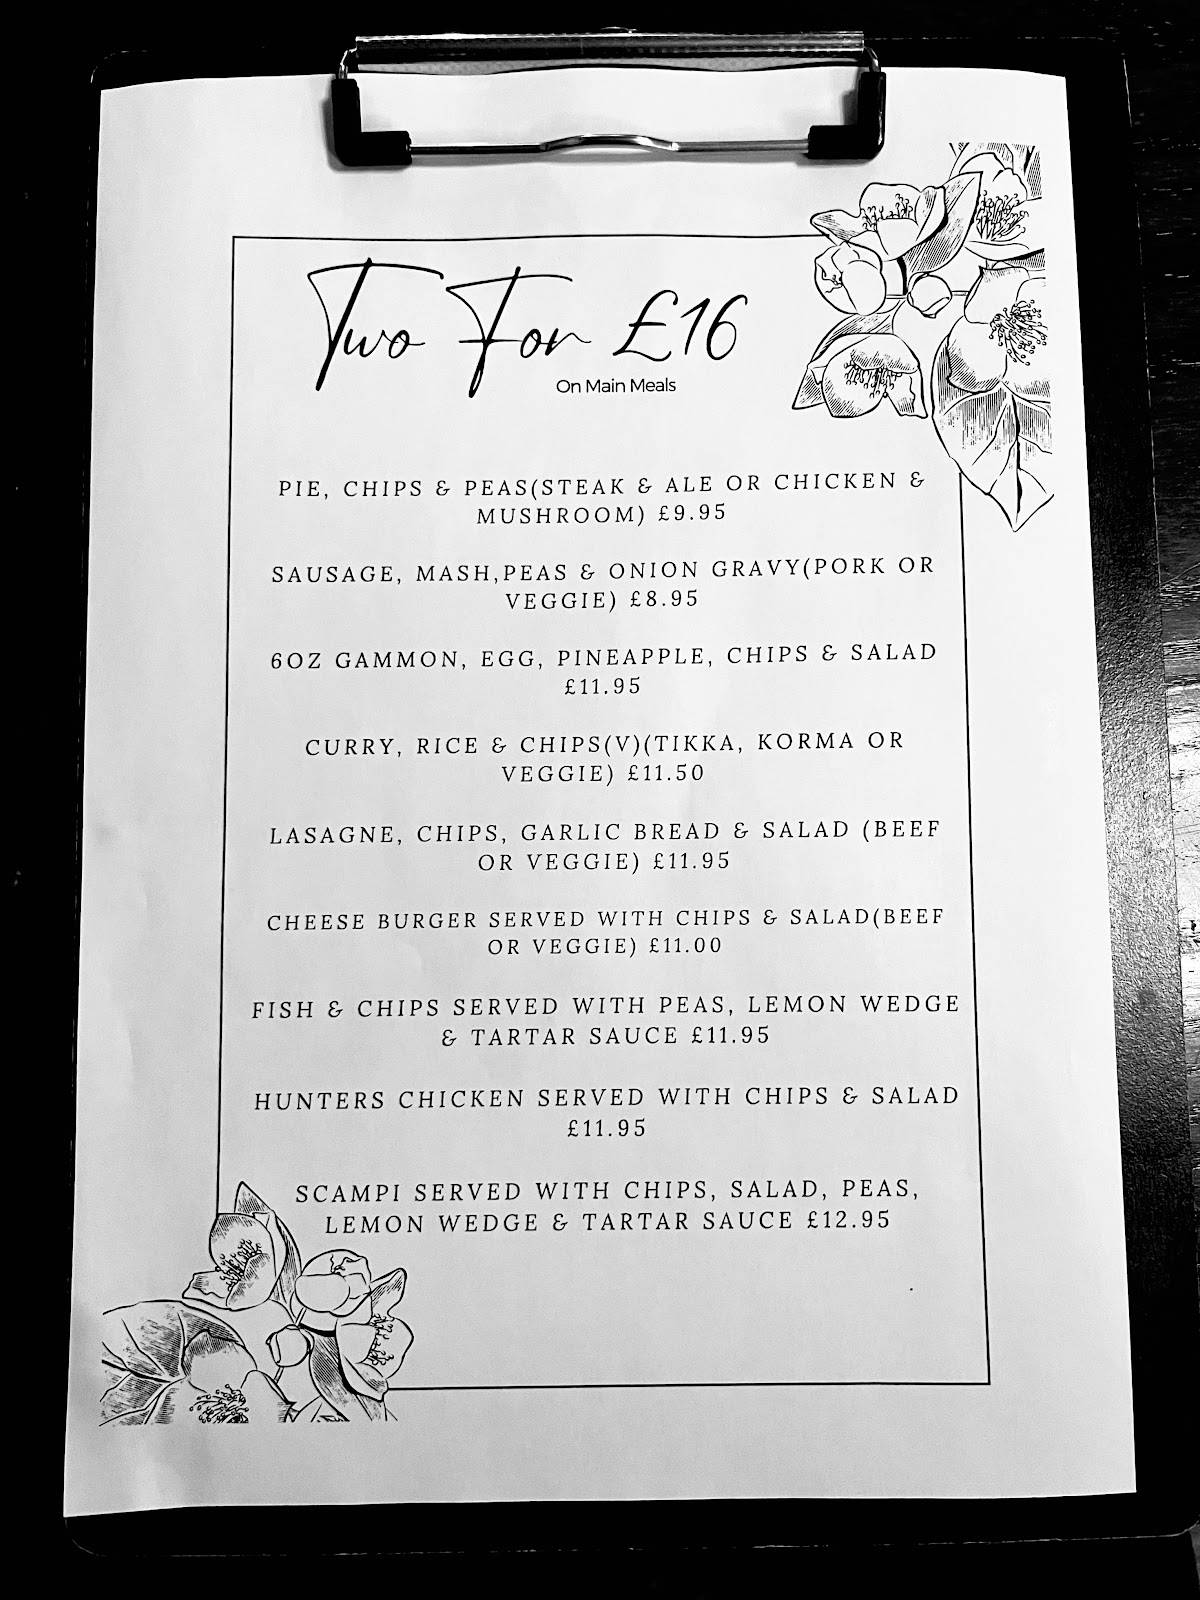 Two For £16
On Main Meals
PIE, CHIPS & PEAS(STEAK & ALE OR CHICKEN &
MUSHROOM) £9.95
SAUSAGE, MASH,PEAS & ONION GRAVY(PORK OR
VEGGIE) £8.95
6OZ GAMMON, EGG, PINEAPPLE, CHIPS & SALAD
£11.95
CURRY, RICE & CHIPS(V)(TIKKA, KORMA OR
VEGGIE) £11.50
LASAGNE, CHIPS, GARLIC BREAD & SALAD (BEEF
OR VEGGIE) £11.95
CHEESE BURGER SERVED WITH CHIPS & SALAD(BEEF
OR VEGGIE) £11.00
FISH & CHIPS SERVED WITH PEAS, LEMON WEDGE
& TARTAR SAUCE £11.95
HUNTERS CHICKEN SERVED WITH CHIPS & SALAD
£11.95
SCAMPI SERVED WITH CHIPS, SALAD, PEAS,
LEMON WEDGE & TARTAR SAUCE £12.95